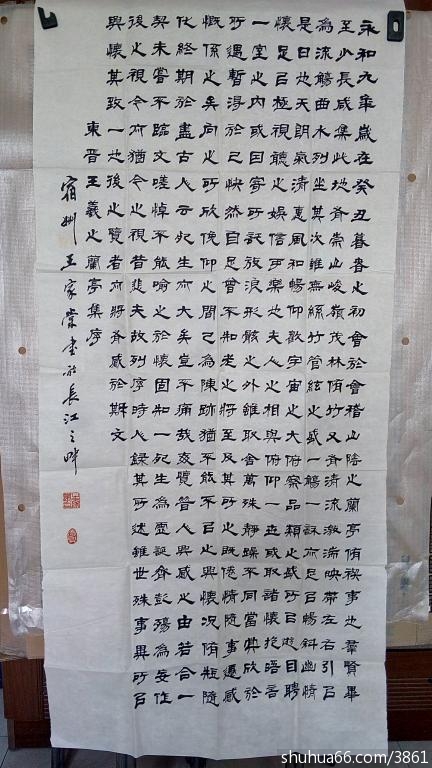 永和九年歲在癸丑暮春之初會於會稽山陰之蘭亭脩禊事也群賢畢
至少長咸集此地有崇山峻嶺茂林脩竹又有清流激湍映帶左右引以
為流觴曲水列坐其次雖無絲竹管絃之盛一觴一詠亦足以暢敘幽情
是日也天朗氣清惠風和暢仰觀宇宙之大俯察品類之盛所以遊目騁
懷足以極視聽之娛信可樂也夫人之相與俯仰一世或取諸懷抱晤言
一室之內或因寄所託放浪形骸之外雖取舍萬殊靜躁不同當其欣於
所遇暫得於己快然自足曾不知老之將至及其所之既倦情隨事遷感
慨係之矣向之所欣俛仰之間已為陳跡猶不能不以之興懷況脩短隨
化終期於盡古人云死生亦大矣豈不痛哉每覽昔人興感之由若合一
契未嘗不臨文嗟悼不能喻之於懷固知一死生為虛誕齊彭殤為妄作
後之視今亦猶今之視昔悲夫故列序時人錄其所述雖世殊事異所以
興懷其致一也後之覽者亦將有感於斯文
東晉王羲之蘭亭集序
宿州王家棠書於長江之畔
shuhua66.com/3861